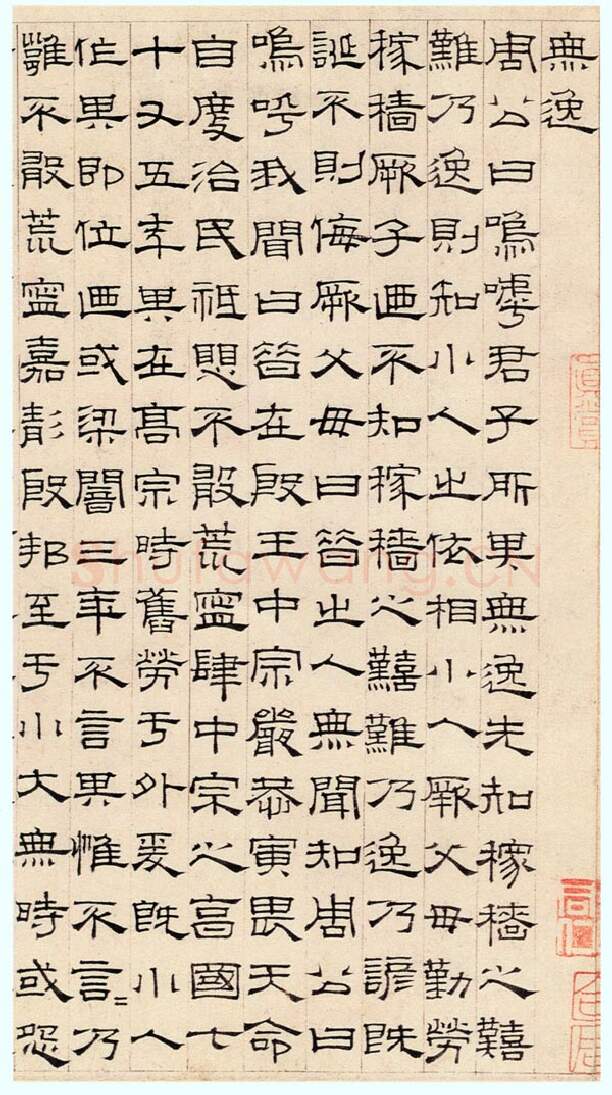 無逸
周公曰嗚嘑君子所其無逸先知稼穡之囏
難乃逸則知小人之依相小人厥父母勤勞
稼穡厥子迺不知稼穡之囏難乃逸乃諺既
誕不則侮厥父母曰昔之人無聞知周公曰
嗚呼我聞曰昔在殷王中宗嚴恭寅畏天命
自度治民祗愳不敢荒寧肆中宗之享國七
十又五年其在高宗時舊勞于外爰既小人
作其即位迺或梁闇三年不言其惟不言=乃
雝不敢荒寧嘉靖殷邦至于小大無時或怨
真賞
Shufawang.CN